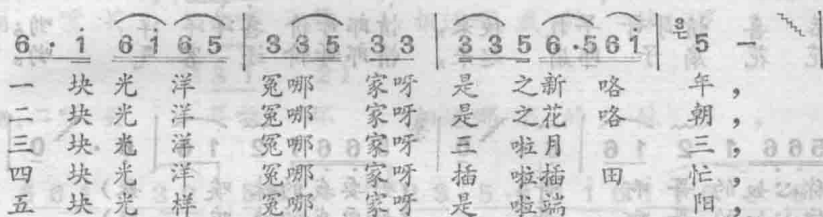 6 · i 6 i 6 5 | 3 3 5 3 3 | 3 3 5 6 · 5 6 i | 5 — |
一 块 光 洋 冤 哪 家 呀 是 之 新 咯 年 ，
二 块 光 洋 冤 哪 家 呀 是 之 花 咯 朝 ，
三 块 光 洋 冤 哪 家 呀 三 啦 月 三 ，
四 块 光 洋 冤 哪 家 呀 插 啦 插 田 忙 ，
五 块 光 样 冤 哪 家 呀 是 啦 端 阳 ，